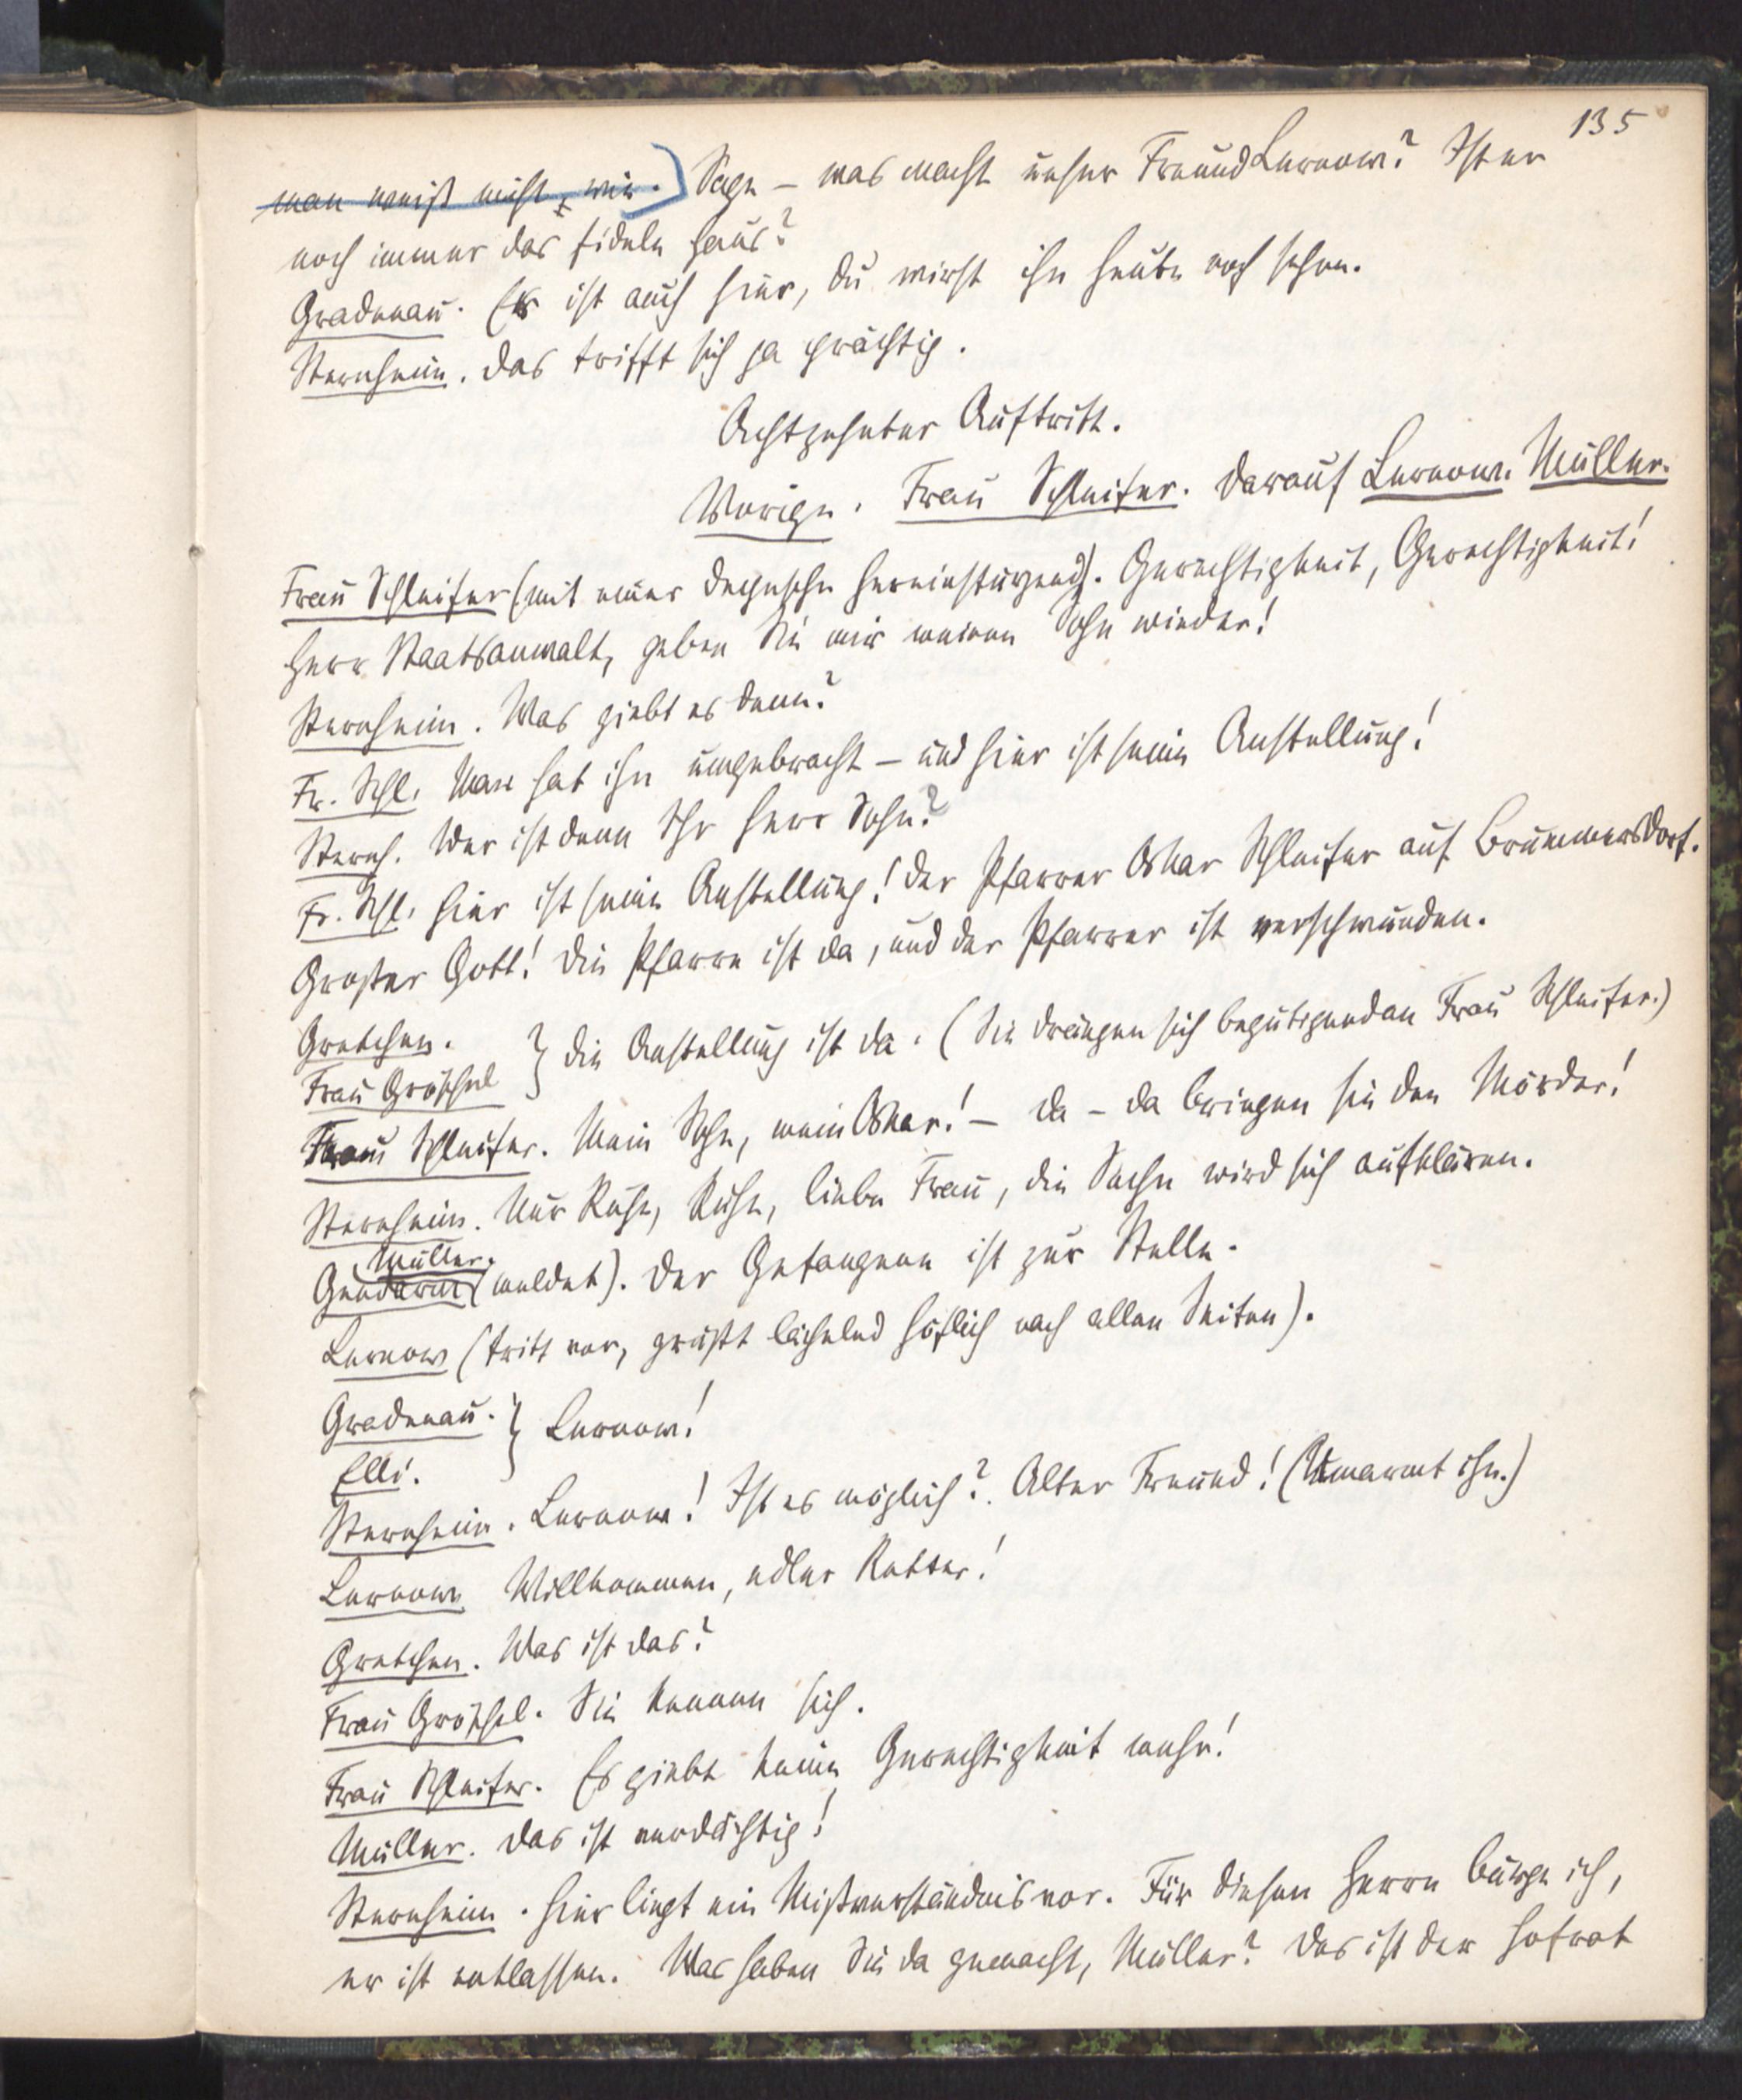 135
man weiß nicht, wie. Sage – was macht unser Freund Lernow? Ist er
noch immer das fidele Haus?
Gradenau. Er ist auch hier, du wirst ihn heute noch sehen.
Sternheim. Das trifft sich ja prächtig.
Achtzehnter Auftritt.
Vorige. Frau Schleifer. Darauf Lernow. Müller.
Frau Schleifer (mit einer Depesche hereinstürzend). Gerechtigkeit, Gerechtigkeit!
Herr Staatsanwalt, geben Sie mir meinen Sohn wieder!
Sternheim. Was giebt es denn?
Fr. Schl. Man hat ihn umgebracht – und hier ist seine Anstellung!
Sternh. Wer ist denn Ihr Herr Sohn?
Fr. Schl. Hier ist seine Anstellung! Der Pfarrer Oskar Schleifer auf Brümmersdorf.
Großer Gott! Die Pfarre ist da, und der Pfarrer ist verschwunden.
Gretchen.
Frau Gröschel } Die Anstellung ist da. (Sie drängen sich begütigend an Frau Schleifer.)
Frau Schleifer. Mein Sohn, mein Oskar! – Da – da bringen sie den Mörder!
Sternheim. Nur Ruhe, Ruhe, liebe Frau, die Sache wird sich aufklären.
Müller.
Gendarm (meldet). Der Gefangene ist zur Stelle.
Lernow (tritt vor, grüßt lächelnd höflich nach allen Seiten).
Gradenau. } Lernow!
Elli.
Sternheim. Lernow! Ist es möglich? Alter Freund! (Umarmt ihn.)
Lernow Willkommen, edler Retter!
Gretchen. Was ist das?
Frau Gröschel. Sie kennen sich.
Frau Schleifer. Es giebt keine Gerechtigkeit mehr!
Müller. Das ist verdächtig!
Sternheim. Hier liegt ein Mißverständnis vor. Für diesen Herrn bürge ich,
er ist entlassen. Was haben Sie da gemacht, Müller? Das ist der Hofrat